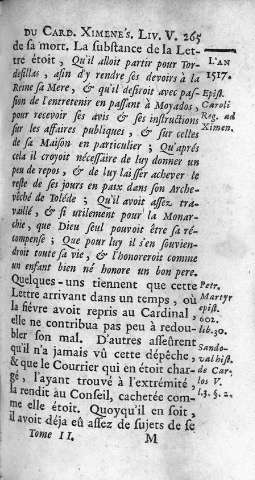 DU CARD. XIMENE'S. LIV. V. 265
de sa mort. La substance de la Let-
tre étoit, Qu'il alloit partir pour Tor-
desillas, afin d'y rendre ses devoirs à la
Reine sa Mere, & qu'il desiroit avec pas-
sion de l'entretenir en passant à Moyados,
pour recevoir ses avis & ses instructions
sur les affaires publiques, & sur celles
de sa Maison en particulier; Qu'aprés
cela il croyoit nécessaire de luy donner un
peu de repos, & de luy laisser achever le
reste de ses jours en paix dans son Arche-
véché de Toléde; Qu'il avoit assez tra-
vaillé, & si utilement pour la Monar-
chie, que Dieu seul pouvoit être sa ré-
compense; Que pour luy il s'en souvien-
droit toute sa vie, & l'honoreroit comme
un enfant bien né honore un bon pere.
Quelques-uns tiennent que cette
Lettre arrivant dans un temps, où
la fiévre avoit repris au Cardinal,
elle ne contribua pas peu à redou-
bler son mal. D'autres asseûrent
qu'il n'a jamais vû cette dépêche,
& que le Courrier qui en étoit char-
gé, l'ayant trouvé à l'extrémité,
la rendit au Conseil, cachetée com-
me elle étoit. Quoyqu'il en soit,
il avoit déja eû assez de sujets de se
Tome II. M
L'AN
1517.
Epist.
Caroli
Reg. ad
Ximen.
Petr.
Martyr
epist.
602.
lib. 30.
Sando-
val hist.
de Car-
los V.
l. 3. §. 2.